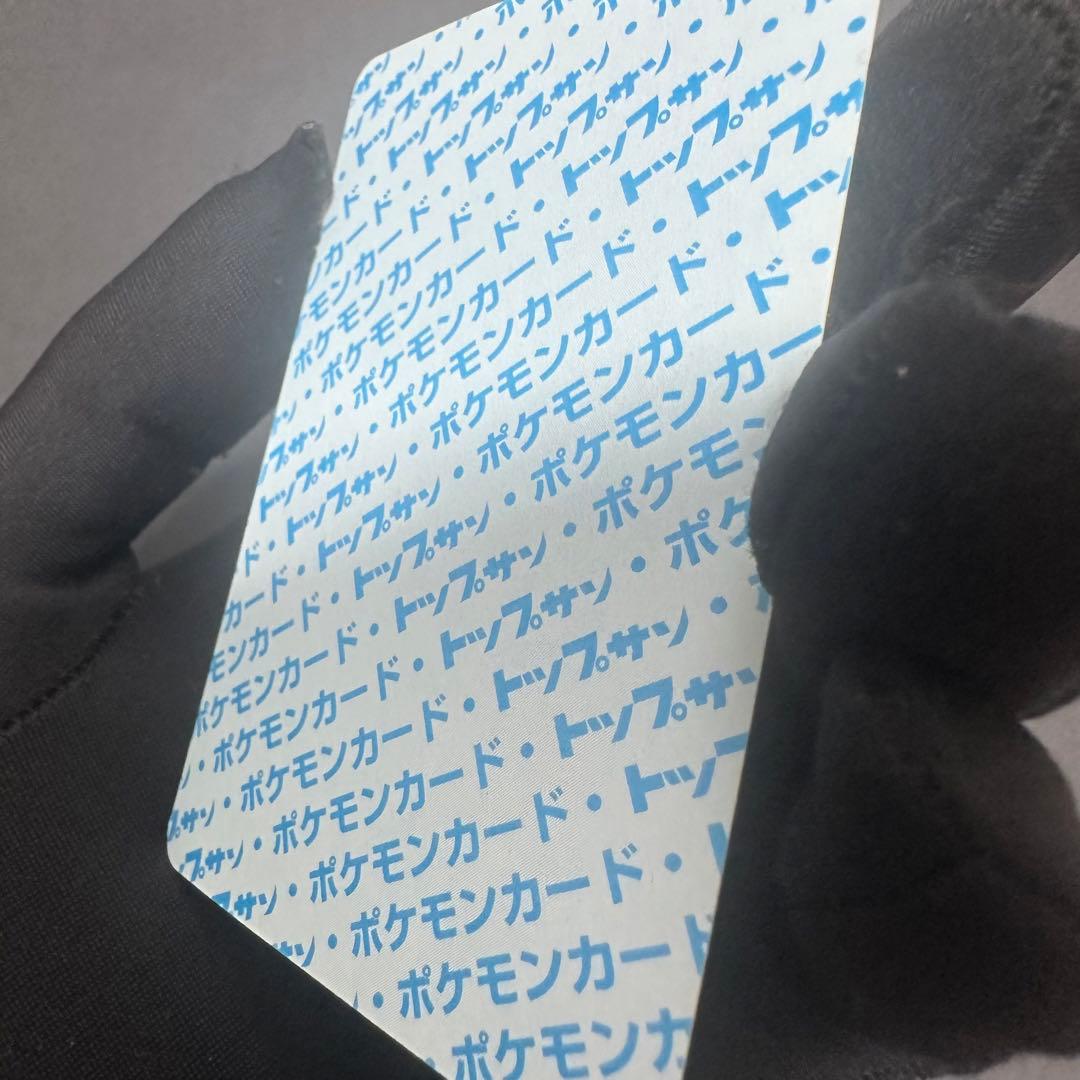 トップサン・ポ
ド・トップサン・ポケ
カード・トップサン・
モンカード・トップサン・
ポケモンカード・トップサン・
・ポケモンカード・トップサン・
サン・ポケモンカード・トップサン・
プサン・ポケモンカード・トップサ
トップサン・ポケモンカード・トッ
ド・トップサン・ポケモンカード・
カード・トップサン・ポケモンカー
モンカード・トップサン・ポケモン
ポケモンカード・トップサン・ポケ
ン・ポケモンカード・トップサン・
プサン・ポケモンカード・トップサン
プサン・ポケモンカード・トップ
プサン・ポケモンカード・
サン・ポケモンカード・
・ポケモンカード
ポケモンカ